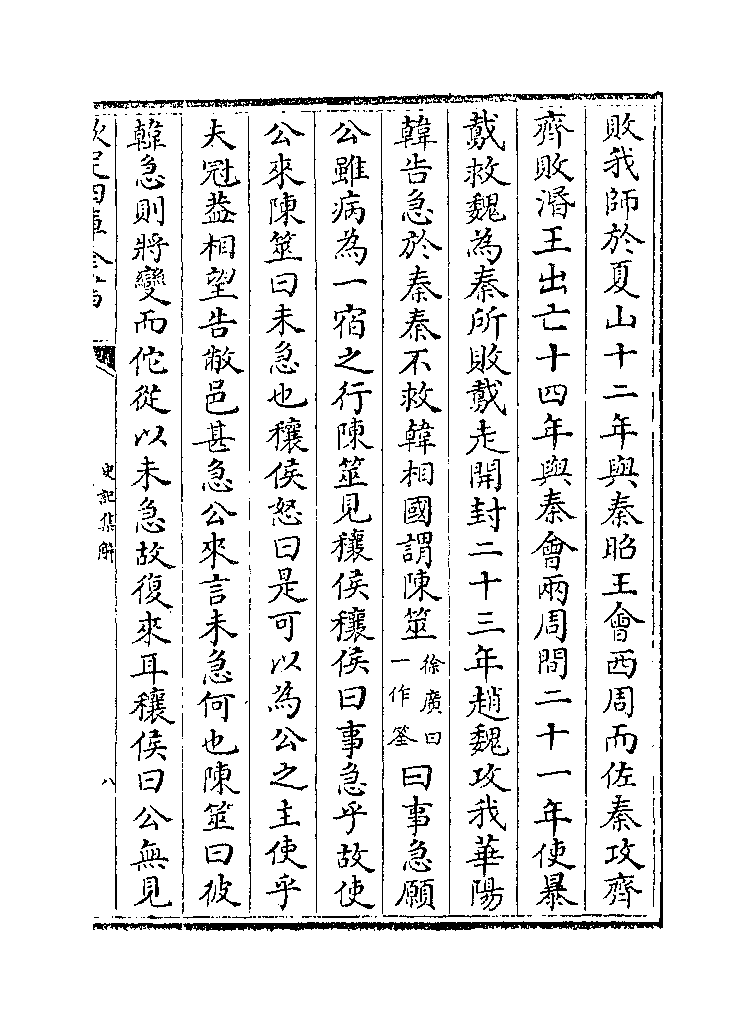 敗我師於夏山十二年與秦昭王會西周而佐秦攻齊
齊敗湣王出亡十四年與秦會兩周間二十一年使暴
䳒救魏為秦所敗䳒走開封二十三年趙魏攻我華陽
韓告急於秦秦不救韓相國謂陳筮徐廣曰一作筌曰事急願
公雖病為一宿之行陳筮見穰侯穰侯曰事急乎故使
公來陳筮曰未急也穰侯怒曰是可以為公之主使乎
夫冠葢相望告敝邑甚急公來言未急何也陳筮曰彼
韓急則將變而佗從以未急故復來耳穰侯曰公無見
欽定四庫全書
史記集解
八